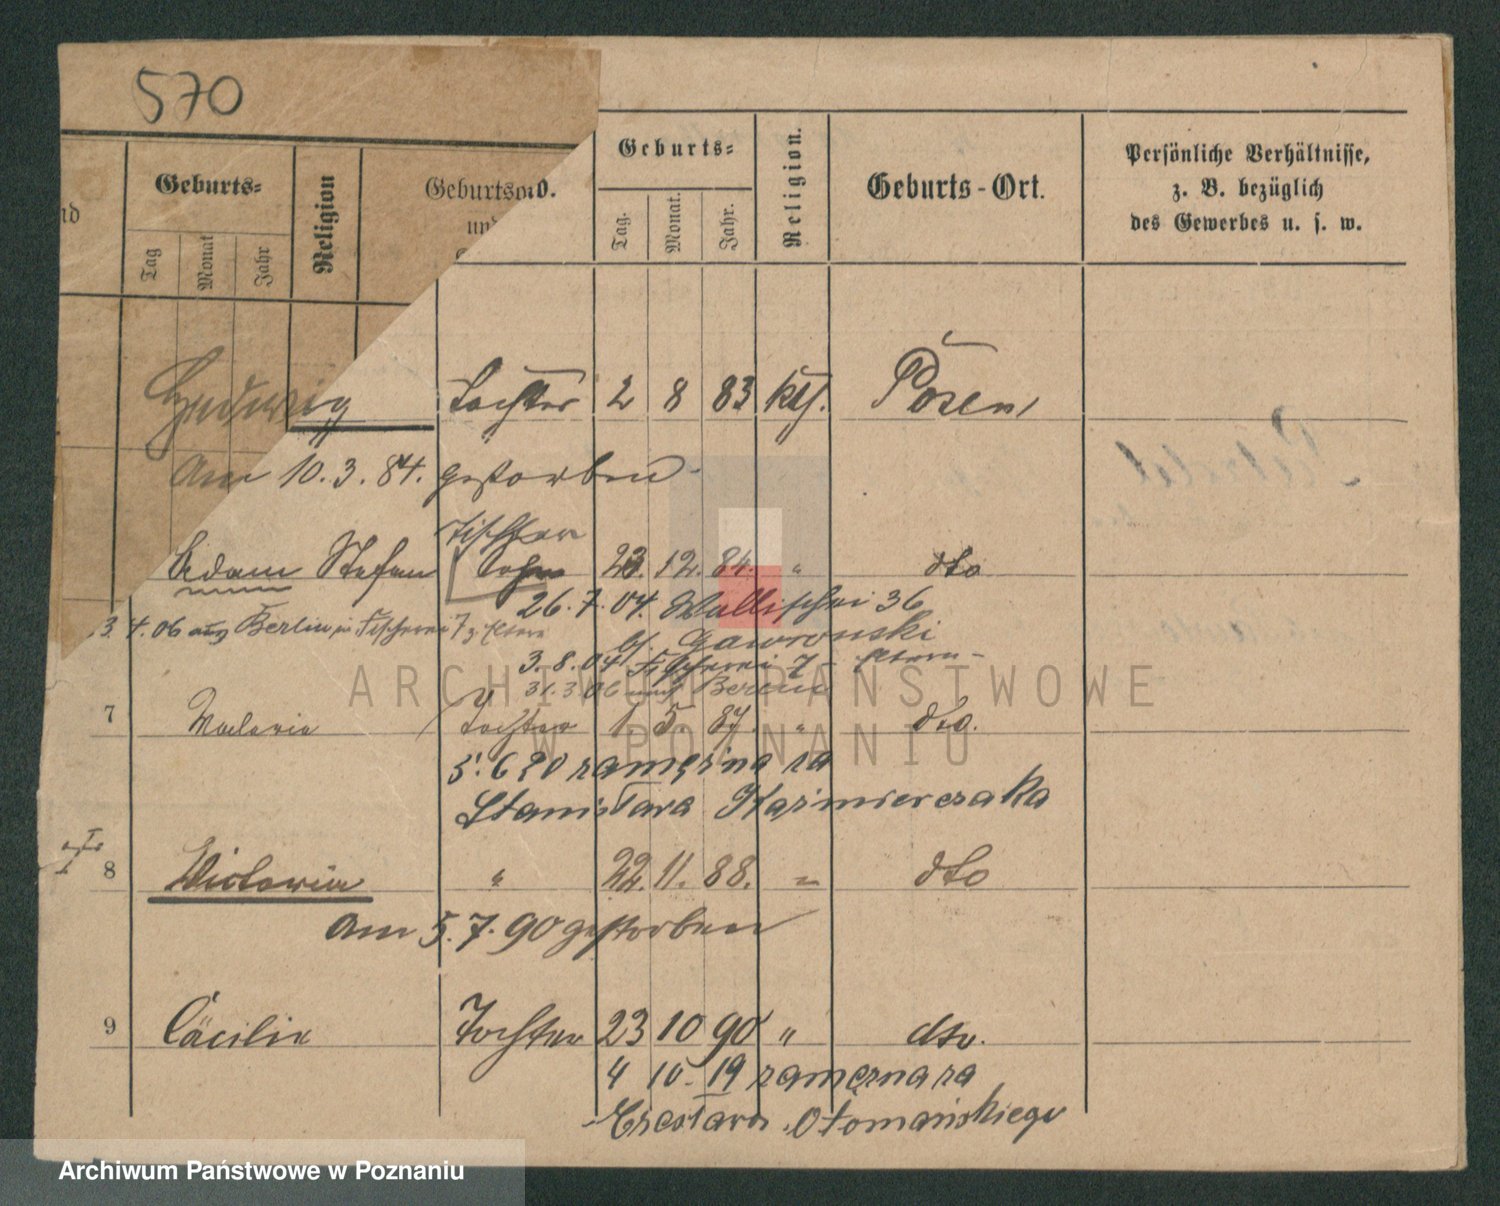 570
nd
Geburts-
Tag
Monat
Jahr
Religion
Geburts
und
Geburts-
Tag.
Monat.
Jahr.
Religion.
Geburts-Ort.
Persönliche Verhältnisse,
z. B. bezüglich
des Gewerbes u. s. w.
Hedwig Tochter 2 8 83 kth. Posen
am 10.3.84. gestorben
Tischler
Adam Stefan Sohn 23. 12. 84. " dto
26.7.04. Wallischei 36
bf. Gaworonski
3.4.06 aus Berlin in Fischerei 7 z. Eltern
3.8.04 Fischerei 7 - Eltern -
31.3.06 nach Berlin
7 Waleria Tochter 1. 5. 87. " dto.
5. 6 20 zamężna za
Stanisława Kaźmierczaka
8 Victoria " 22. 11. 88. " dto
am 5.7.90 gestorben
9 Cäcilie Tochter 23 10 90 " dto.
4 10. 19 zamężna za
Czesława Otomańskiego
ARCHIWUM PAŃSTWOWE
W POZNANIU
Archiwum Państwowe w Poznaniu